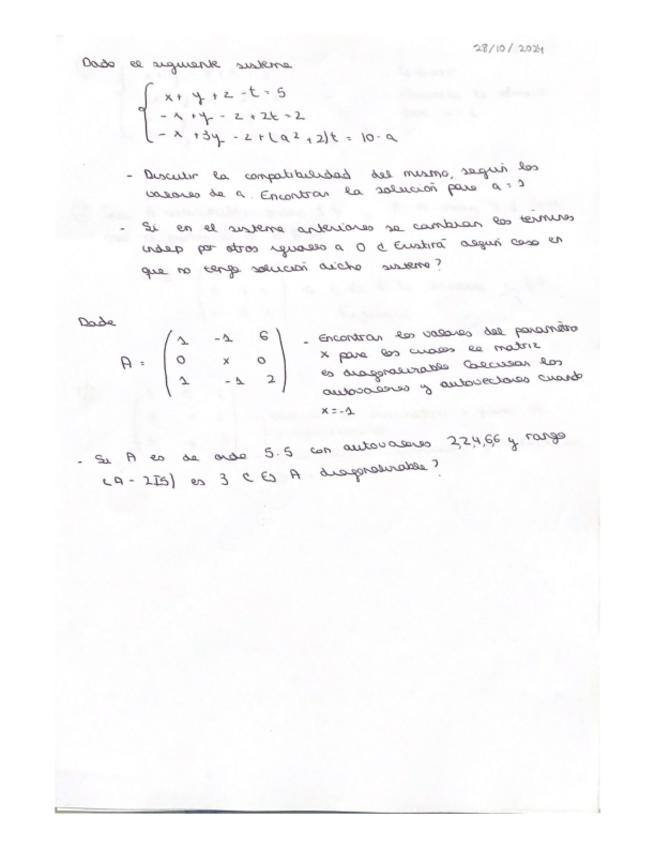 28/10/2024
Dado el siguiente sistema
x + y + z - t = 5
- x + y - z + 2t = 2
- x + 3y - z + (a² + 2)t = 10 - a
- Discutir la compatibilidad del mismo, según los
valores de a. Encontrar la solución para a =
- Si en el sistema anteriores se cambian los términos
indep por otros iguales a 0 ¿ Existirá algún caso en
que no tenga solución dicho sistema?
Dada
A = ( 1 -1 6
0 x 0
1 -1 2 )
- Encontrar los valores del parámetro
x para los cuales la matriz
es diagonalizable Calcular los
autovalores y autovectores cuando
x = -1
- Si A es de orde 5.5 con autovalores 2,2,4,6,6 y rango
(A - 2I5) es 3 ¿ Es A diagonalizable?